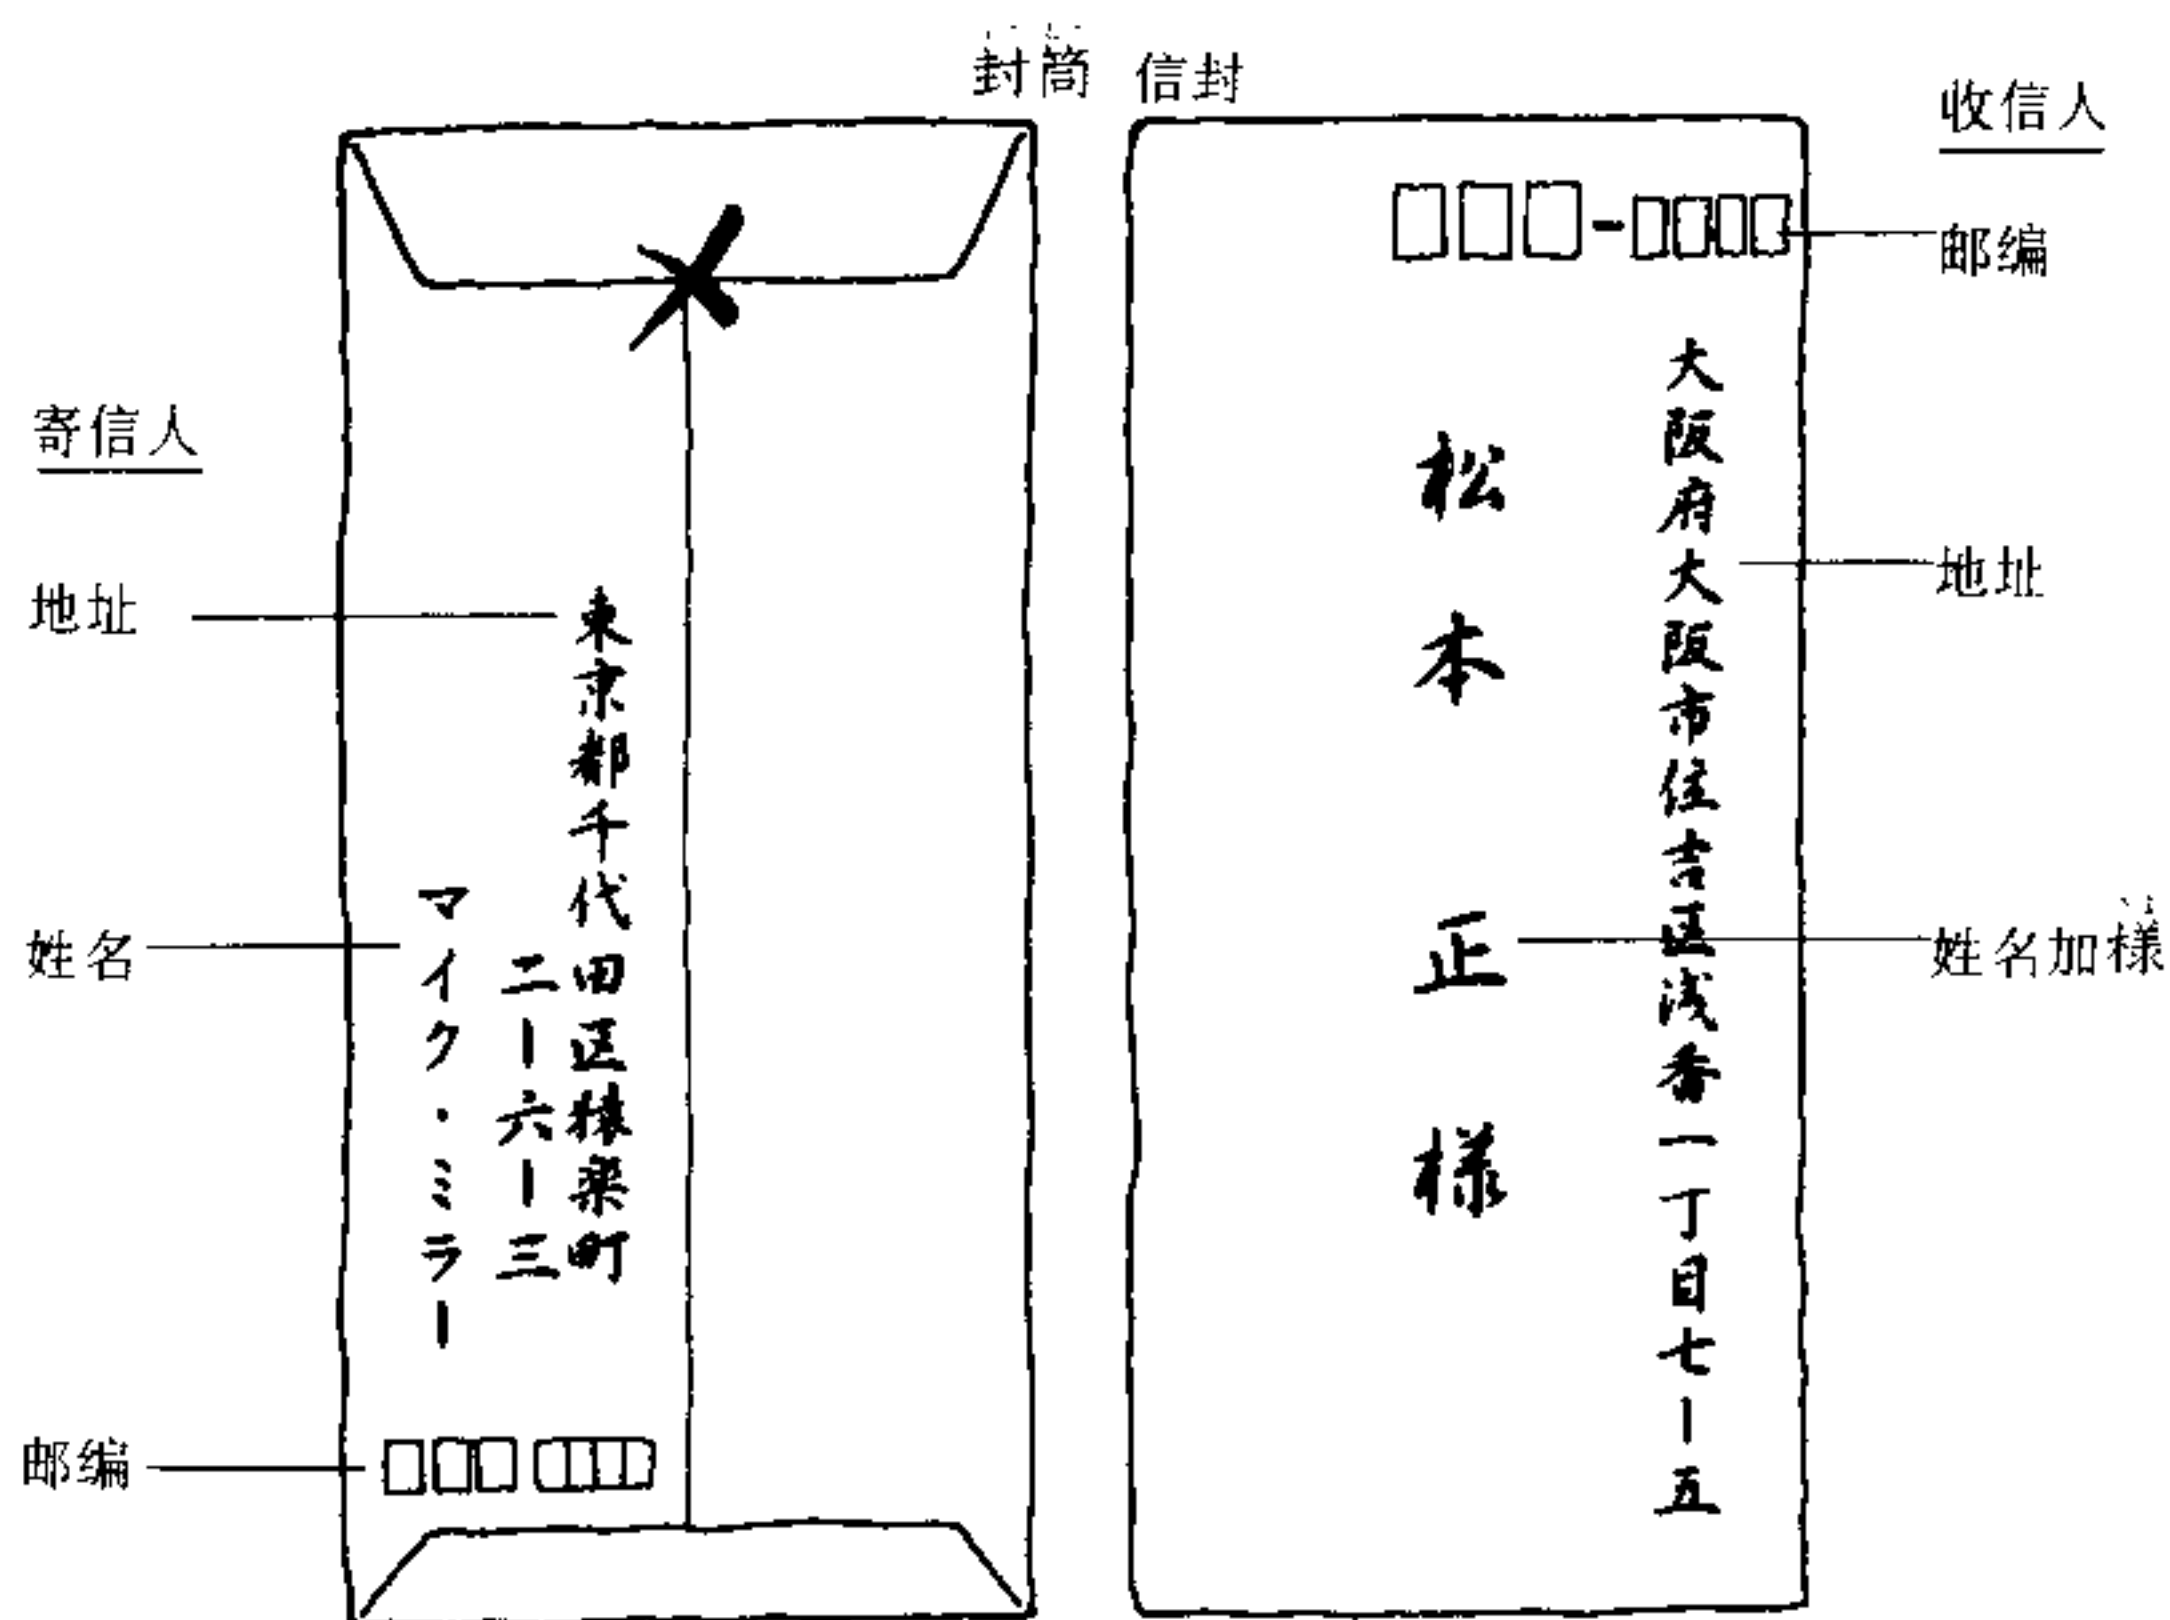 封筒 信封
寄信人
地址
姓名
邮编
東京都千代田区猿楽町
二ー六ー三
マイク・ミラー
收信人
邮编
地址
姓名加様
大阪府大阪市住吉区浅香一丁目七ー五
松本正様